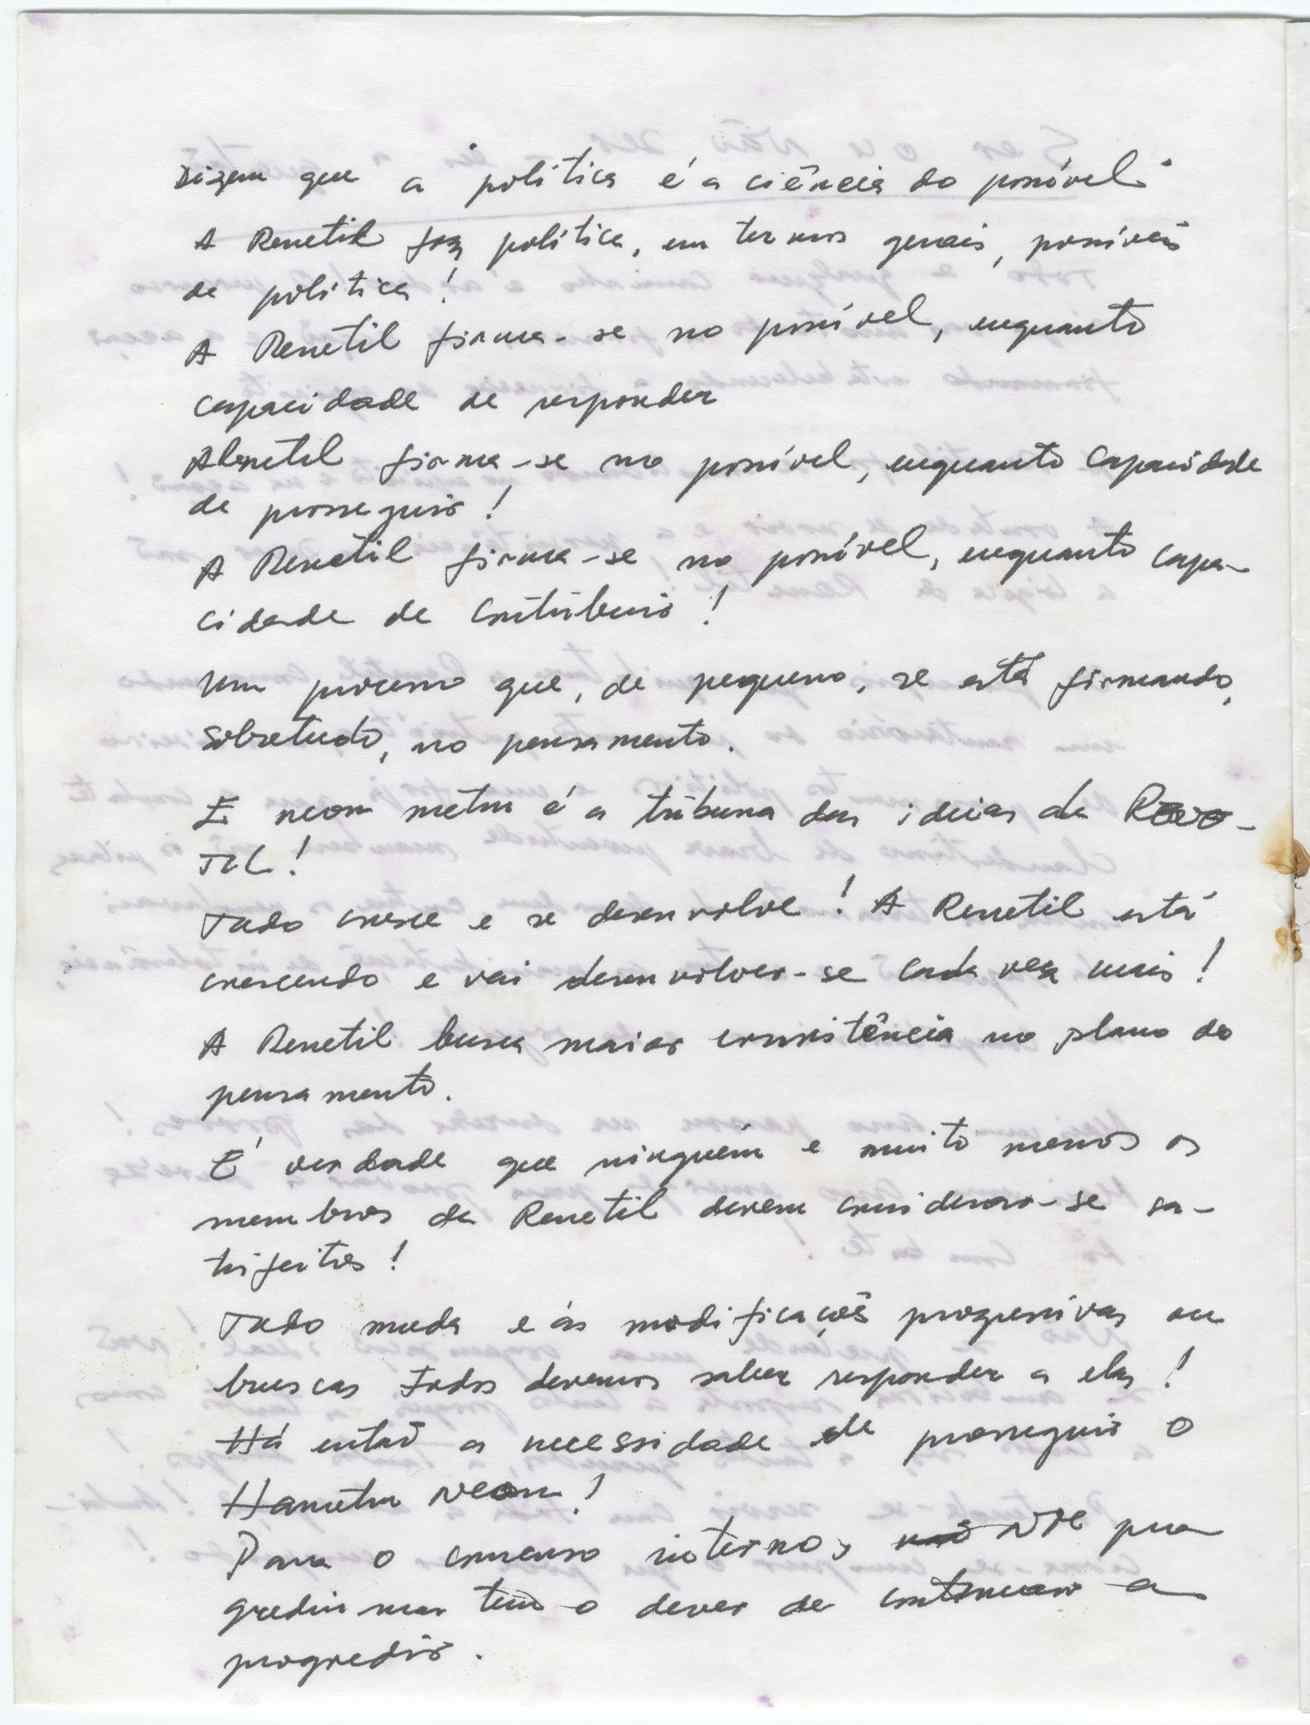 Dizem que a "política é a ciência do possível"
A Renetil faz política, em termos gerais, possíveis
de política!
A Renetil firma-se no possível, enquanto
capacidade de responder
A Renetil firma-se no possível, enquanto capacidade
de prosseguir!
A Renetil firma-se no possível, enquanto capa-
cidade de contribuir!
Um processo que, de pequeno, se está firmando,
sobretudo, no pensamento.
E neon metin é a tribuna das ideias da
TIL!
Tudo cresce e se desenvolve! A Renetil está
crescendo e vai desenvolver-se cada vez mais!
A Renetil busca maior consistência no plano do
pensamento.
É verdade que ninguém e muito menos os
membros da Renetil devem considerar-se sa-
tisfeitos!
Tudo muda e às modificações progressivas ou
bruscas todos devemos saber responder a elas!
Há então a necessidade de prosseguir o
Hanutin Neon!
Para o consenso interno,
mas tem o dever de continuar a
progredir.